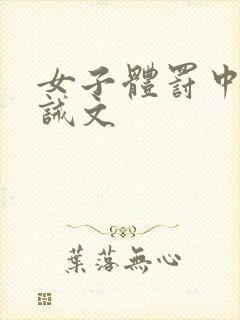 女子體罰中
誡文
葉落無心